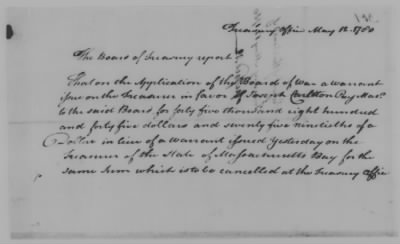 Treasury Office May 12. 1780
The Board of Treasury report
That on the Application of the Board of War a Warrant
issue on the Treasurer in favor of Joseph Carlton Pay Masr.
to the said Board for forty five thousand eight hundred
and forty five dollars and seventy five ninetieths of a
Dollar in lieu of a Warrant issued Yesterday on the
Treasurer of the State of Massachusetts Bay for the
same Sum which is to be cancelled at the Treasury Office